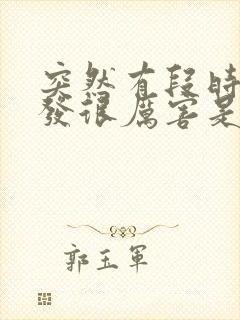 突然有段時
發很厲害是
郭玉軍